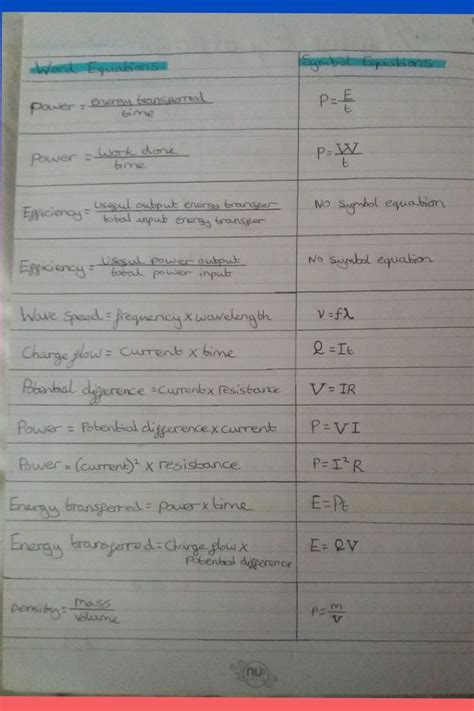 Word Equations Symbol Equations
Power = energy transferred / time P = E / t
Power = work done / time P = W / t
Efficiency = useful output energy transfer / total input energy transfer No symbol equation
Efficiency = useful power output / total power input No symbol equation
Wave speed = frequency x wavelength v = fλ
Charge flow = current x time Q = It
Potential difference = current x resistance V = IR
Power = Potential difference x current P = VI
Power = (current)² x resistance P = I²R
Energy transferred = power x time E = Pt
Energy transferred = Charge flow x E = QV
Potential difference
Density = mass / volume P = m / v
nu: